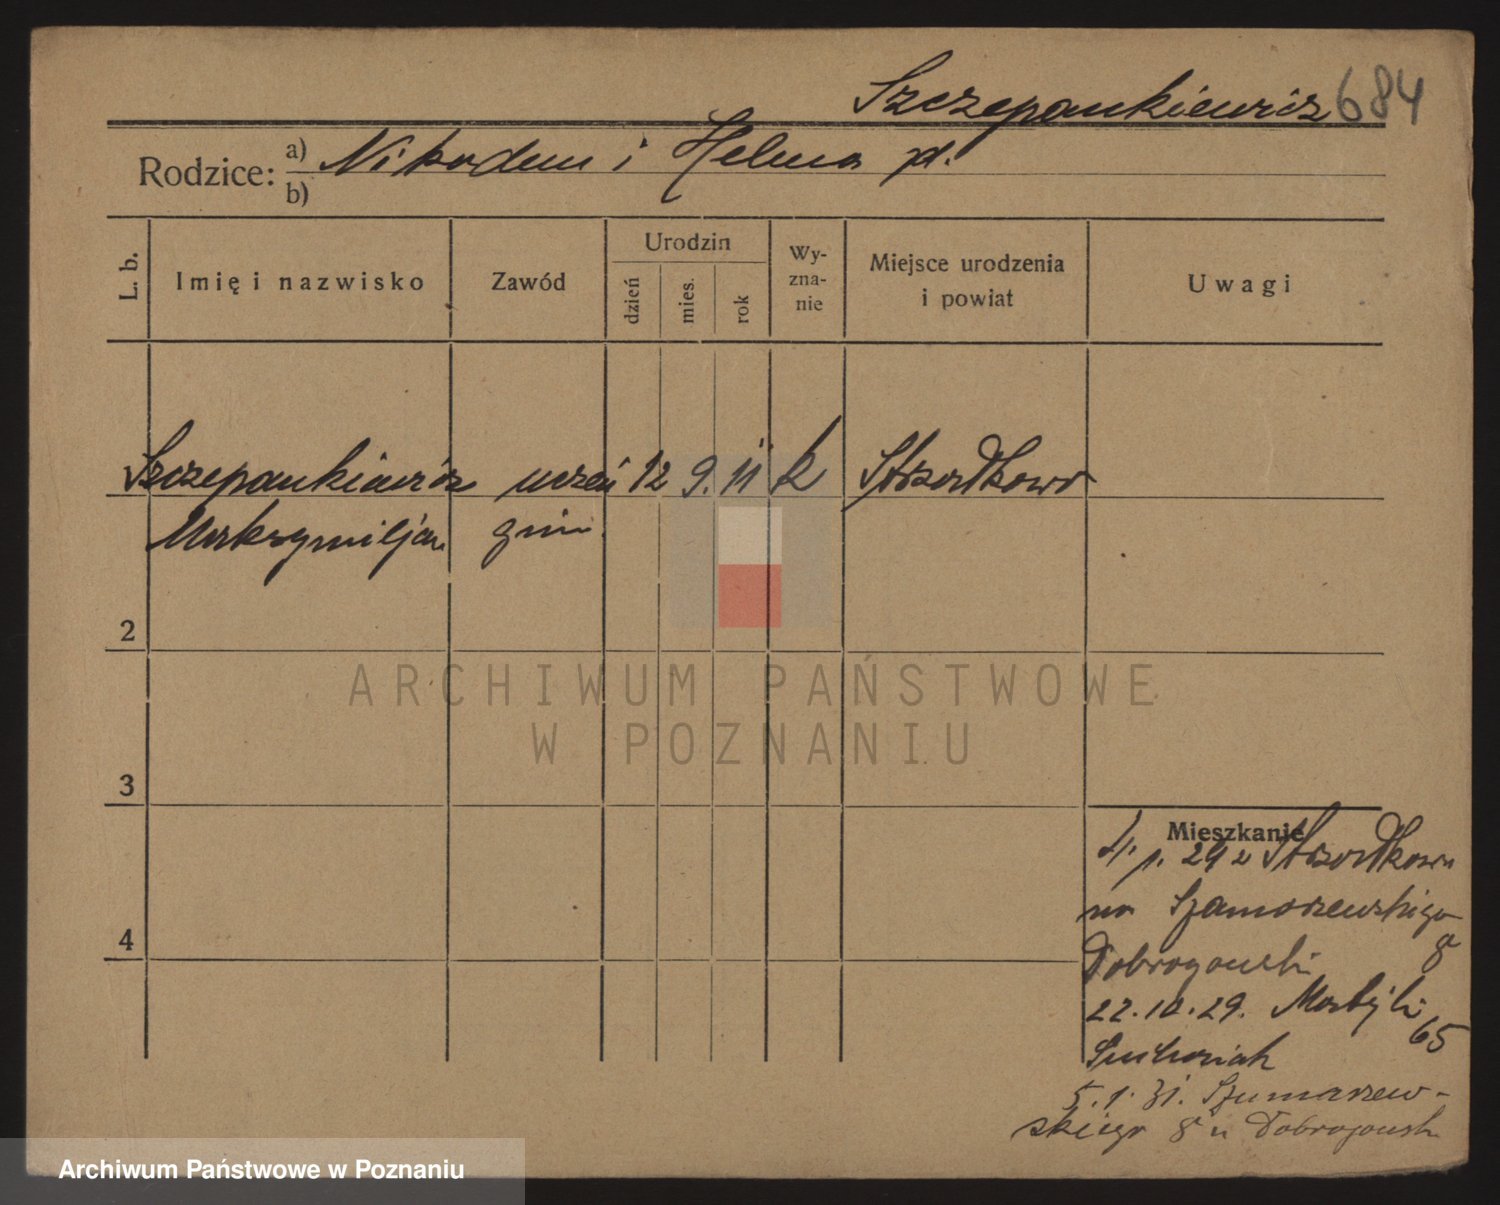 Szczepankiewicz 684
Rodzice: a) Nikodem i Helena
b)
L. b.
Imię i nazwisko
Zawód
Urodzin
dzień
mies.
rok
Wy-
zna-
nie
Miejsce urodzenia
i powiat
Uwagi
Szczepankiewicz uczeń 12 9. 11 k Strzałkowo
Maksymiljan gim.
2
3
4
Mieszkanie
29 z Strzałkowa
na Szamarzewskiego
8
Dobrogowski
22.10.29. Matejki
65
5.1.31. Szamarzew-
skiego 8 u Dobrogowsk
ARCHIWUM PAŃSTWOWE
W POZNANIU
Archiwum Państwowe w Poznaniu